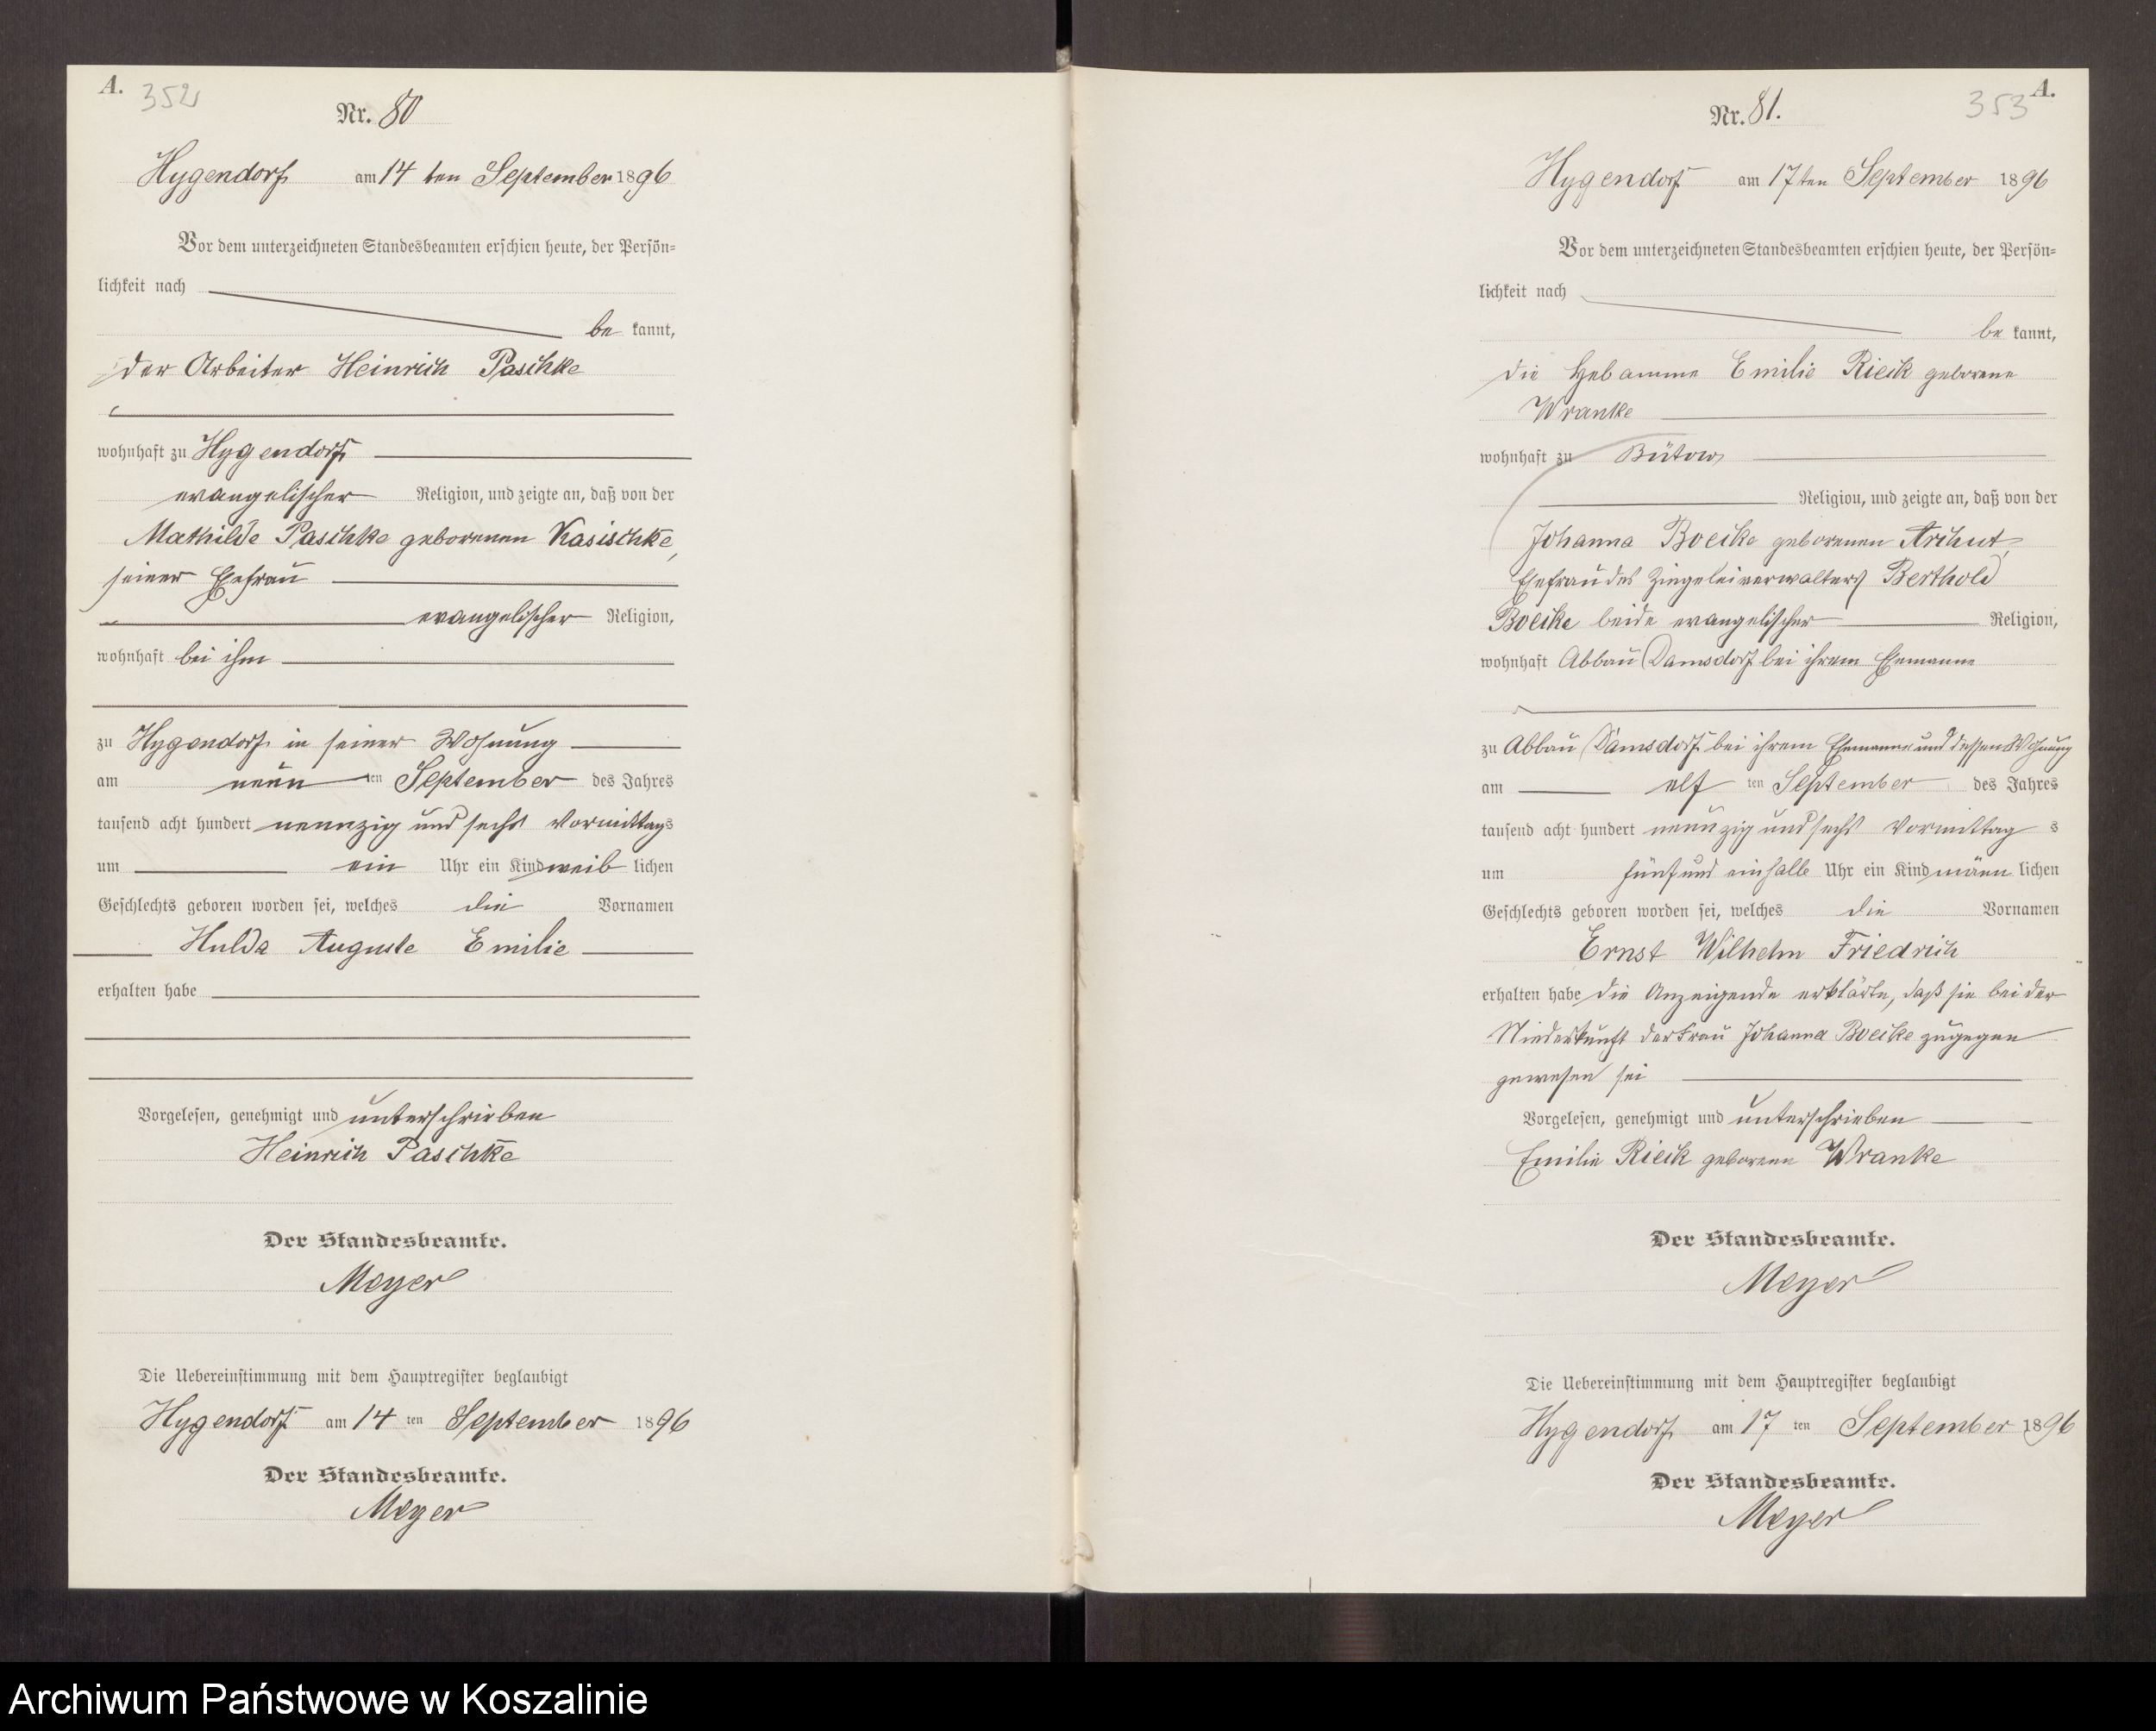 A.
352
Nr. 80
Hygendorf am 14 ten September 1896
Vor dem unterzeichneten Standesbeamten erschien heute, der Persön-
lichkeit nach
be kannt,
der Arbeiter Heinrich Paschke
wohnhaft zu Hygendorf
evangelischer Religion, und zeigte an, daß von der
Mathilde Paschke geborenen Kasischke,
seiner Ehefrau
evangelischer Religion,
wohnhaft bei ihm
zu Hygendorf in seiner Wohnung
am neun ten September des Jahres
tausend acht hundert neunzig und sechs Vormittags
um ein Uhr ein Kind weib lichen
Geschlechts geboren worden sei, welches die Vornamen
Hulda Auguste Emilie
erhalten habe
Vorgelesen, genehmigt und unterschrieben
Heinrich Paschke
Der Standesbeamte.
Meyer
Die Uebereinstimmung mit dem Hauptregister beglaubigt
Hygendorf am 14 ten September 1896
Der Standesbeamte.
Meyer
A.
353
Nr. 81.
Hygendorf am 17 ten September 1896
Vor dem unterzeichneten Standesbeamten erschien heute, der Persön-
lichkeit nach
be kannt,
die Hebamme Emilie Rieck geborene
Wranke
wohnhaft zu Bütow
Religion, und zeigte an, daß von der
Johanna Boeske geborenen Archut,
Ehefrau des Ziegeleiverwalters Berthold
Boeske beide evangelischer Religion,
wohnhaft Abbau Damsdorf bei ihrem Ehemanne
zu Abbau Damsdorf bei ihrem Ehemanne und dessen Wohnung
am elf ten September des Jahres
tausend acht hundert neunzig und sechs Vormittag s
um fünf und ein halb Uhr ein Kind männ lichen
Geschlechts geboren worden sei, welches die Vornamen
Ernst Wilhelm Friedrich
erhalten habe die Anzeigende erklärte, daß sie bei der
Niederkunft der Frau Johanna Boeske zugegen
gewesen sei
Vorgelesen, genehmigt und unterschrieben
Emilie Rieck geborene Wranke
Der Standesbeamte.
Meyer
Die Uebereinstimmung mit dem Hauptregister beglaubigt
Hygendorf am 17 ten September 1896
Der Standesbeamte.
Meyer
Archiwum Państwowe w Koszalinie